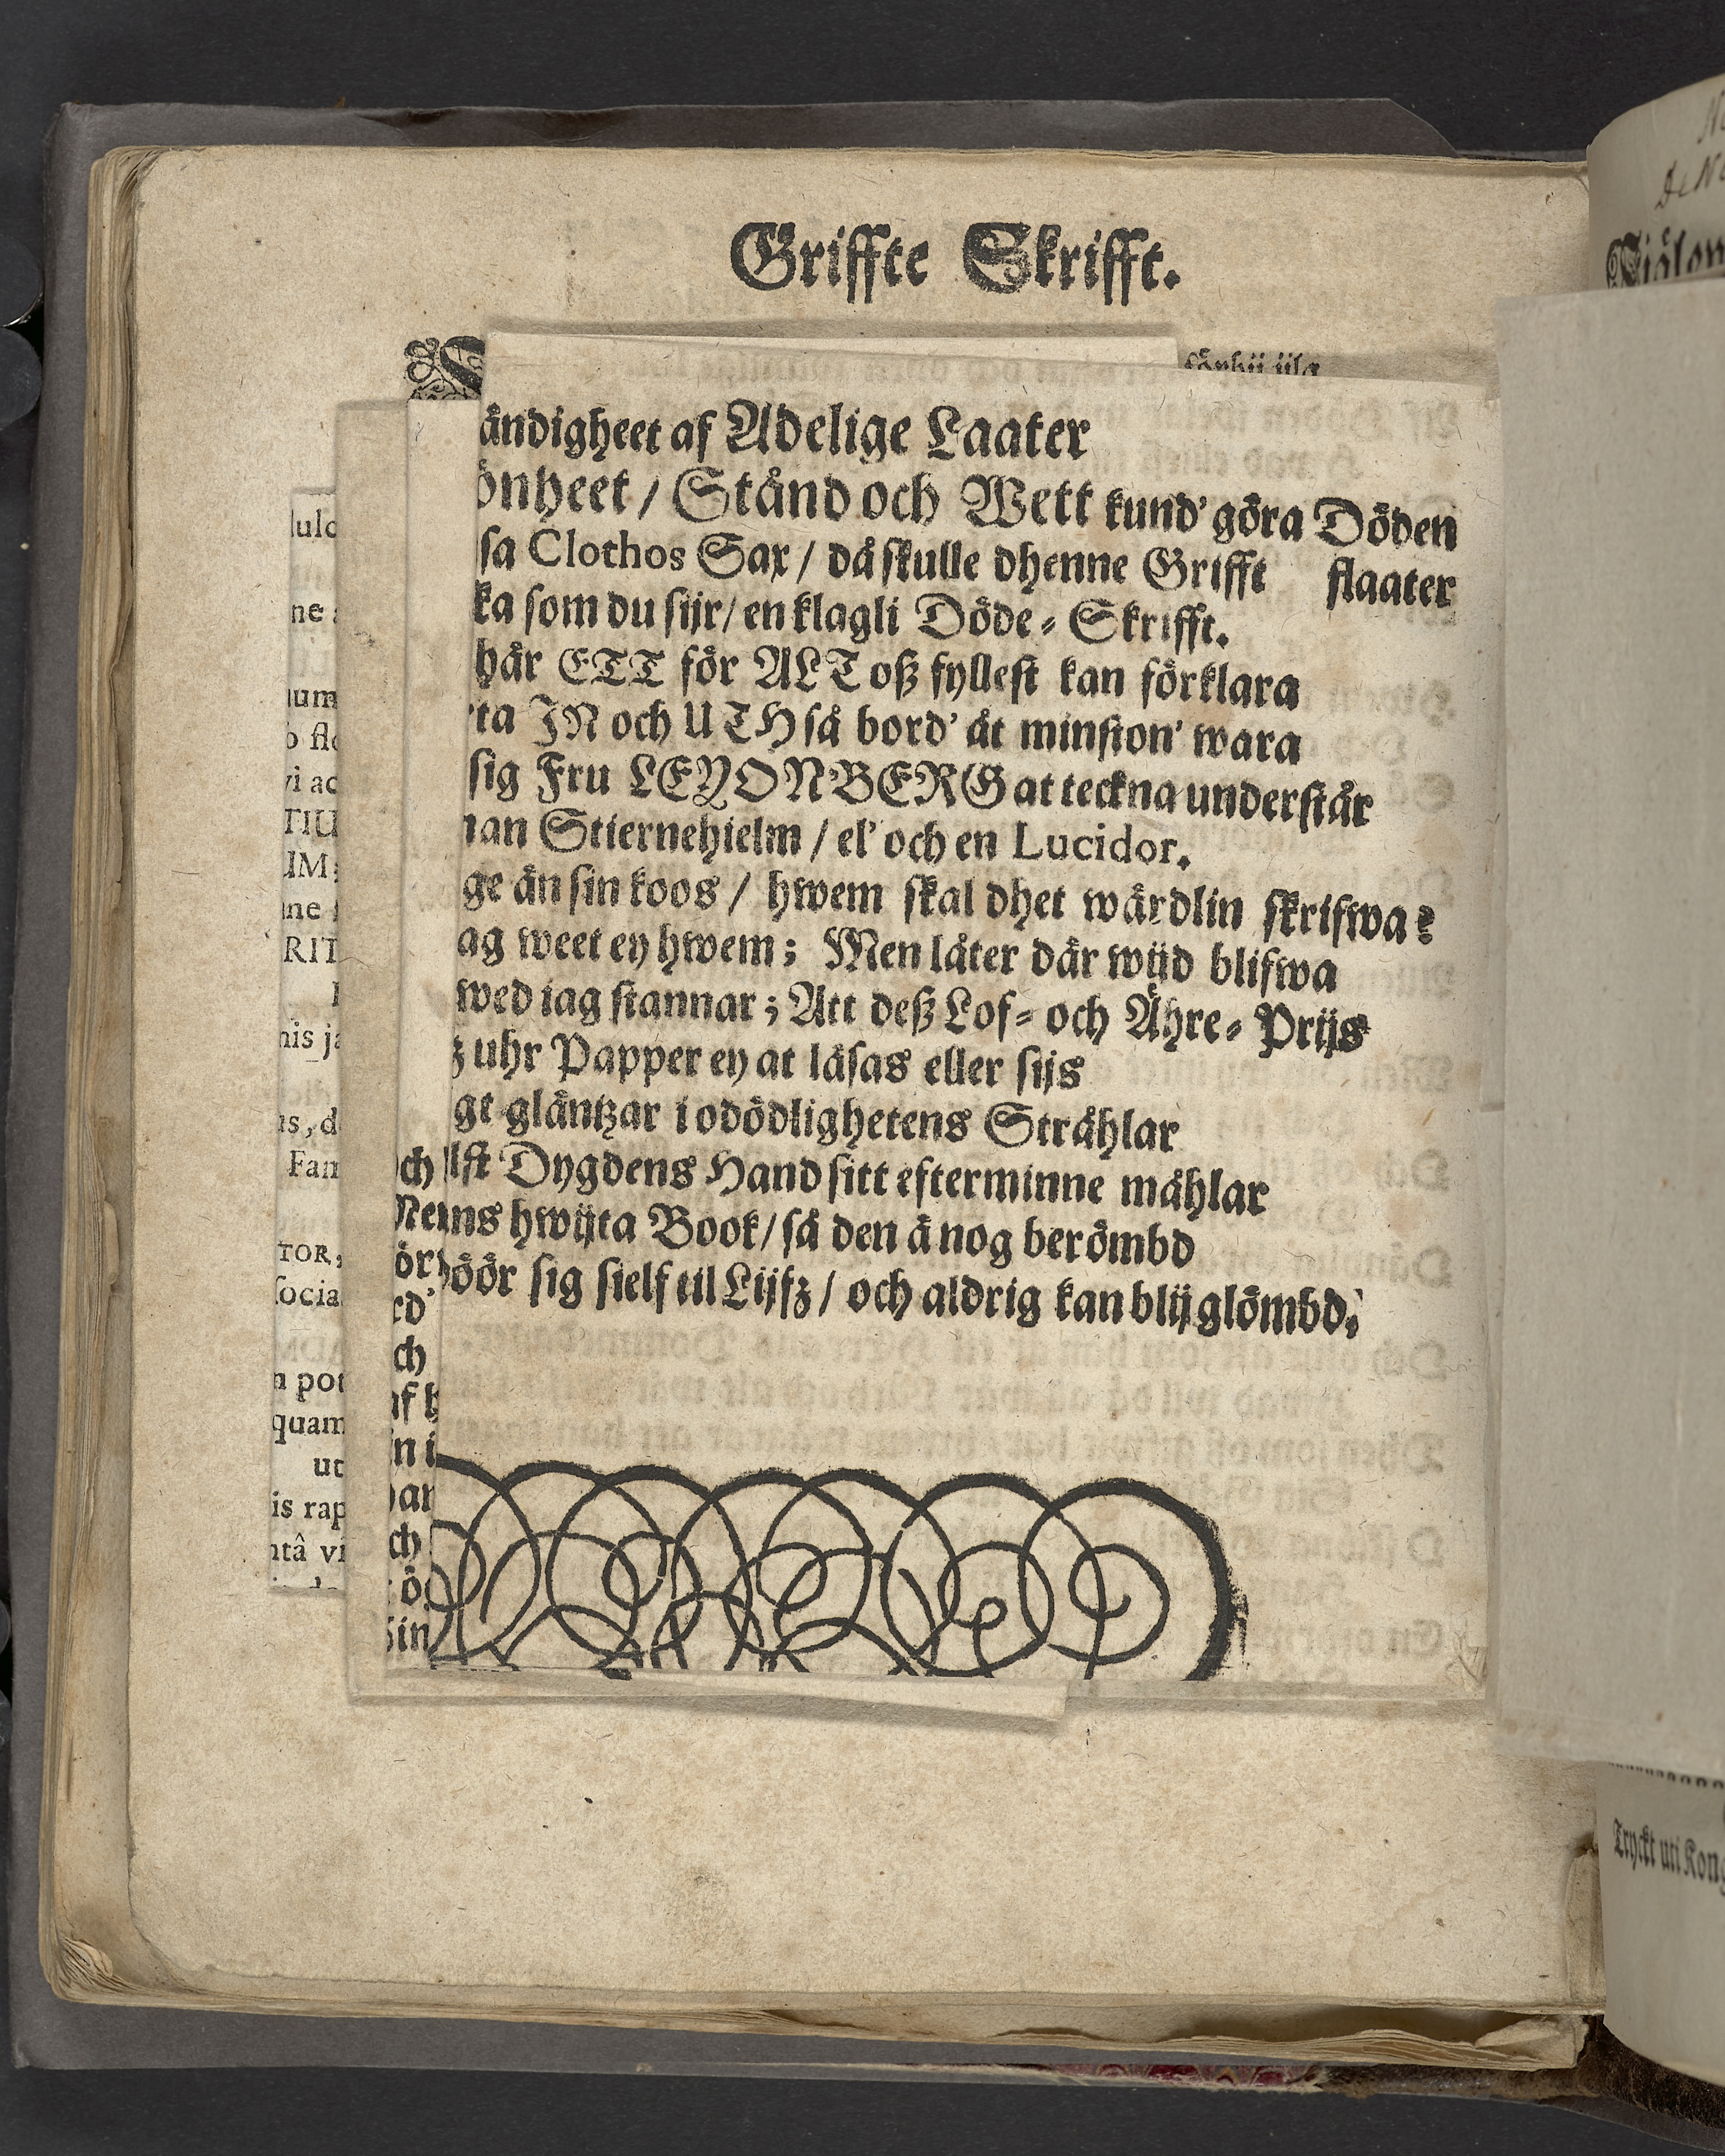 Griffte Skrifft.
ändigheet af Adelige Laater
önheet / Stånd och Wett kund' göra Döden
slaater
sa Clothos Sax / då skulle dhenne Grifft
ka som du sijr / en klagli Döde-Skrifft.
här ETT för ALT oß fyllest kan förklara
ta IN och UTH så bord' åt minston' wara
sig Fru LEYONBERG at teckna understår
nan Stiernehielm / el' och en Lucidor.
ge än sin koos / hwem skal dhet wärdlin skrifwa?
ag weet ey hwem; Men låter där wijd blifwa
wed iag stannar; Att deß Lof- och Ähre-Prijs
z uhr Papper ey at läsas eller sijs
ge gläntzar i odödlighetens Stråhlar
lst Dygdens Hand sitt efterminne måhlar
ns hwijta Book / så den ä nog berömbd
öör sig sielf til Lijfz / och aldrig kan blij glömbd.
ch
Ne
ör
rd'
ch
af h
n i
ar
ch
ö
Sin
lulc
ne
um
o flo
vi ac
TIU
UM;
ne
RIT
nis ja
us, d
Fam
TOR,
socia
n pot
quam
ut
is rap
ntâ vi
Tryckt uti Kong